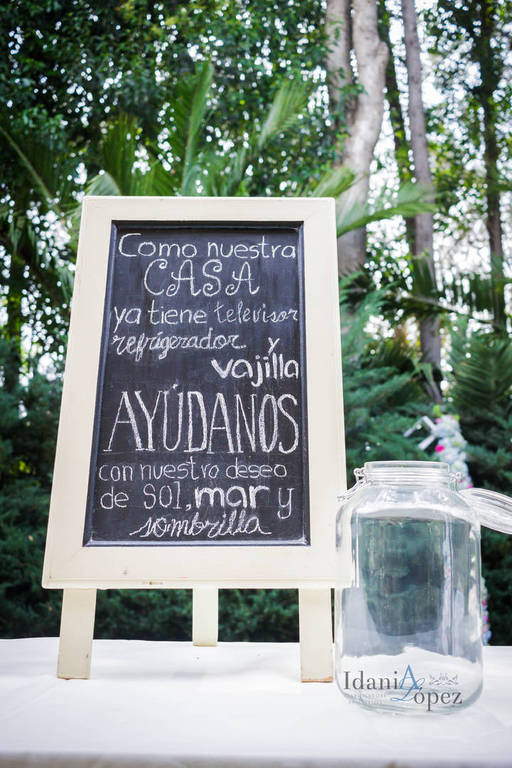 Como nuestra
CASA
ya tiene televisor
refrigerador y
vajilla
AYÚDANOS
con nuestro deseo
de SOl, mar y
sombrilla
Idania López